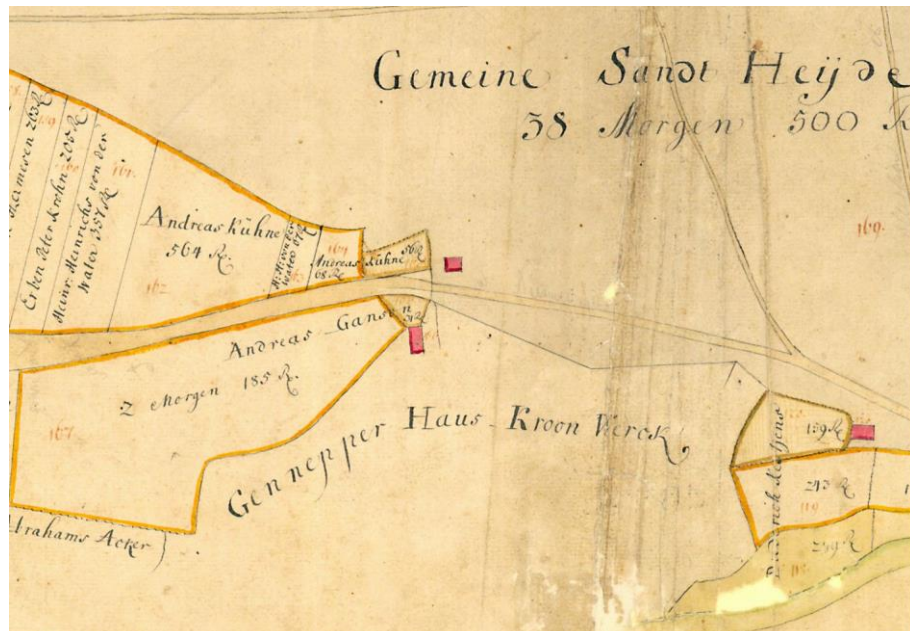 Gemeine Sandt Heijde
38 Morgen 500 R
169.
Erben Peter Krohn 205 R
Heinr: Heinrichs von der
Water 357 R
161.
Andreas Kühne
564 R.
162
H: H: von der
Water 67 R
164
Andreas Kühne 56 R
68 R
Andreas Gansen
31 R
2 Morgen 185 R.
167
Gennepper Haus Kroon Werck
Abrahams Acker
Diederick
159 R
243 R
119
259 R